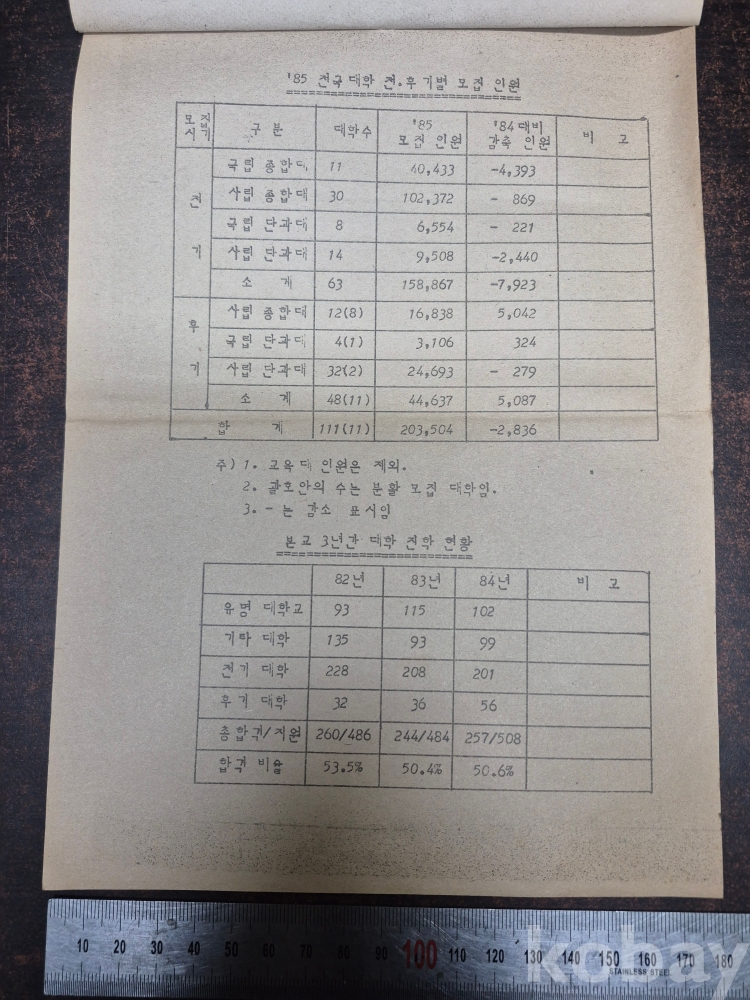 '85 전국 대학 전.후기별 모집 인원
모집 시기 구 분 대학수 '85 모집 인원 '84 대비 감축 인원 비 고
전 기
국립 종합대 11 40,433 -4,393
사립 종합대 30 102,372 - 869
국립 단과대 8 6,554 - 221
사립 단과대 14 9,508 -2,440
소 계 63 158,867 -7,923
후 기
사립 종합대 12(8) 16,838 5,042
국립 단과대 4(1) 3,106 324
사립 단과대 32(2) 24,693 - 279
소 계 48(11) 44,637 5,087
합 계 111(11) 203,504 -2,836
주) 1. 교육대 인원은 제외.
2. 괄호안의 수는 분활 모집 대학임.
3. - 는 감소 표시임
본교 3년간 대학 진학 현황
82년 83년 84년 비 고
유명 대학교 93 115 102
기타 대학 135 93 99
전기 대학 228 208 201
후기 대학 32 36 56
총합격/지원 260/486 244/484 257/508
합격 비율 53.5% 50.4% 50.6%
10 20 30 40 50 60 70 80 90 100 110 120 130 140 150 160 170 180
STAINLESS STEEL
kobay